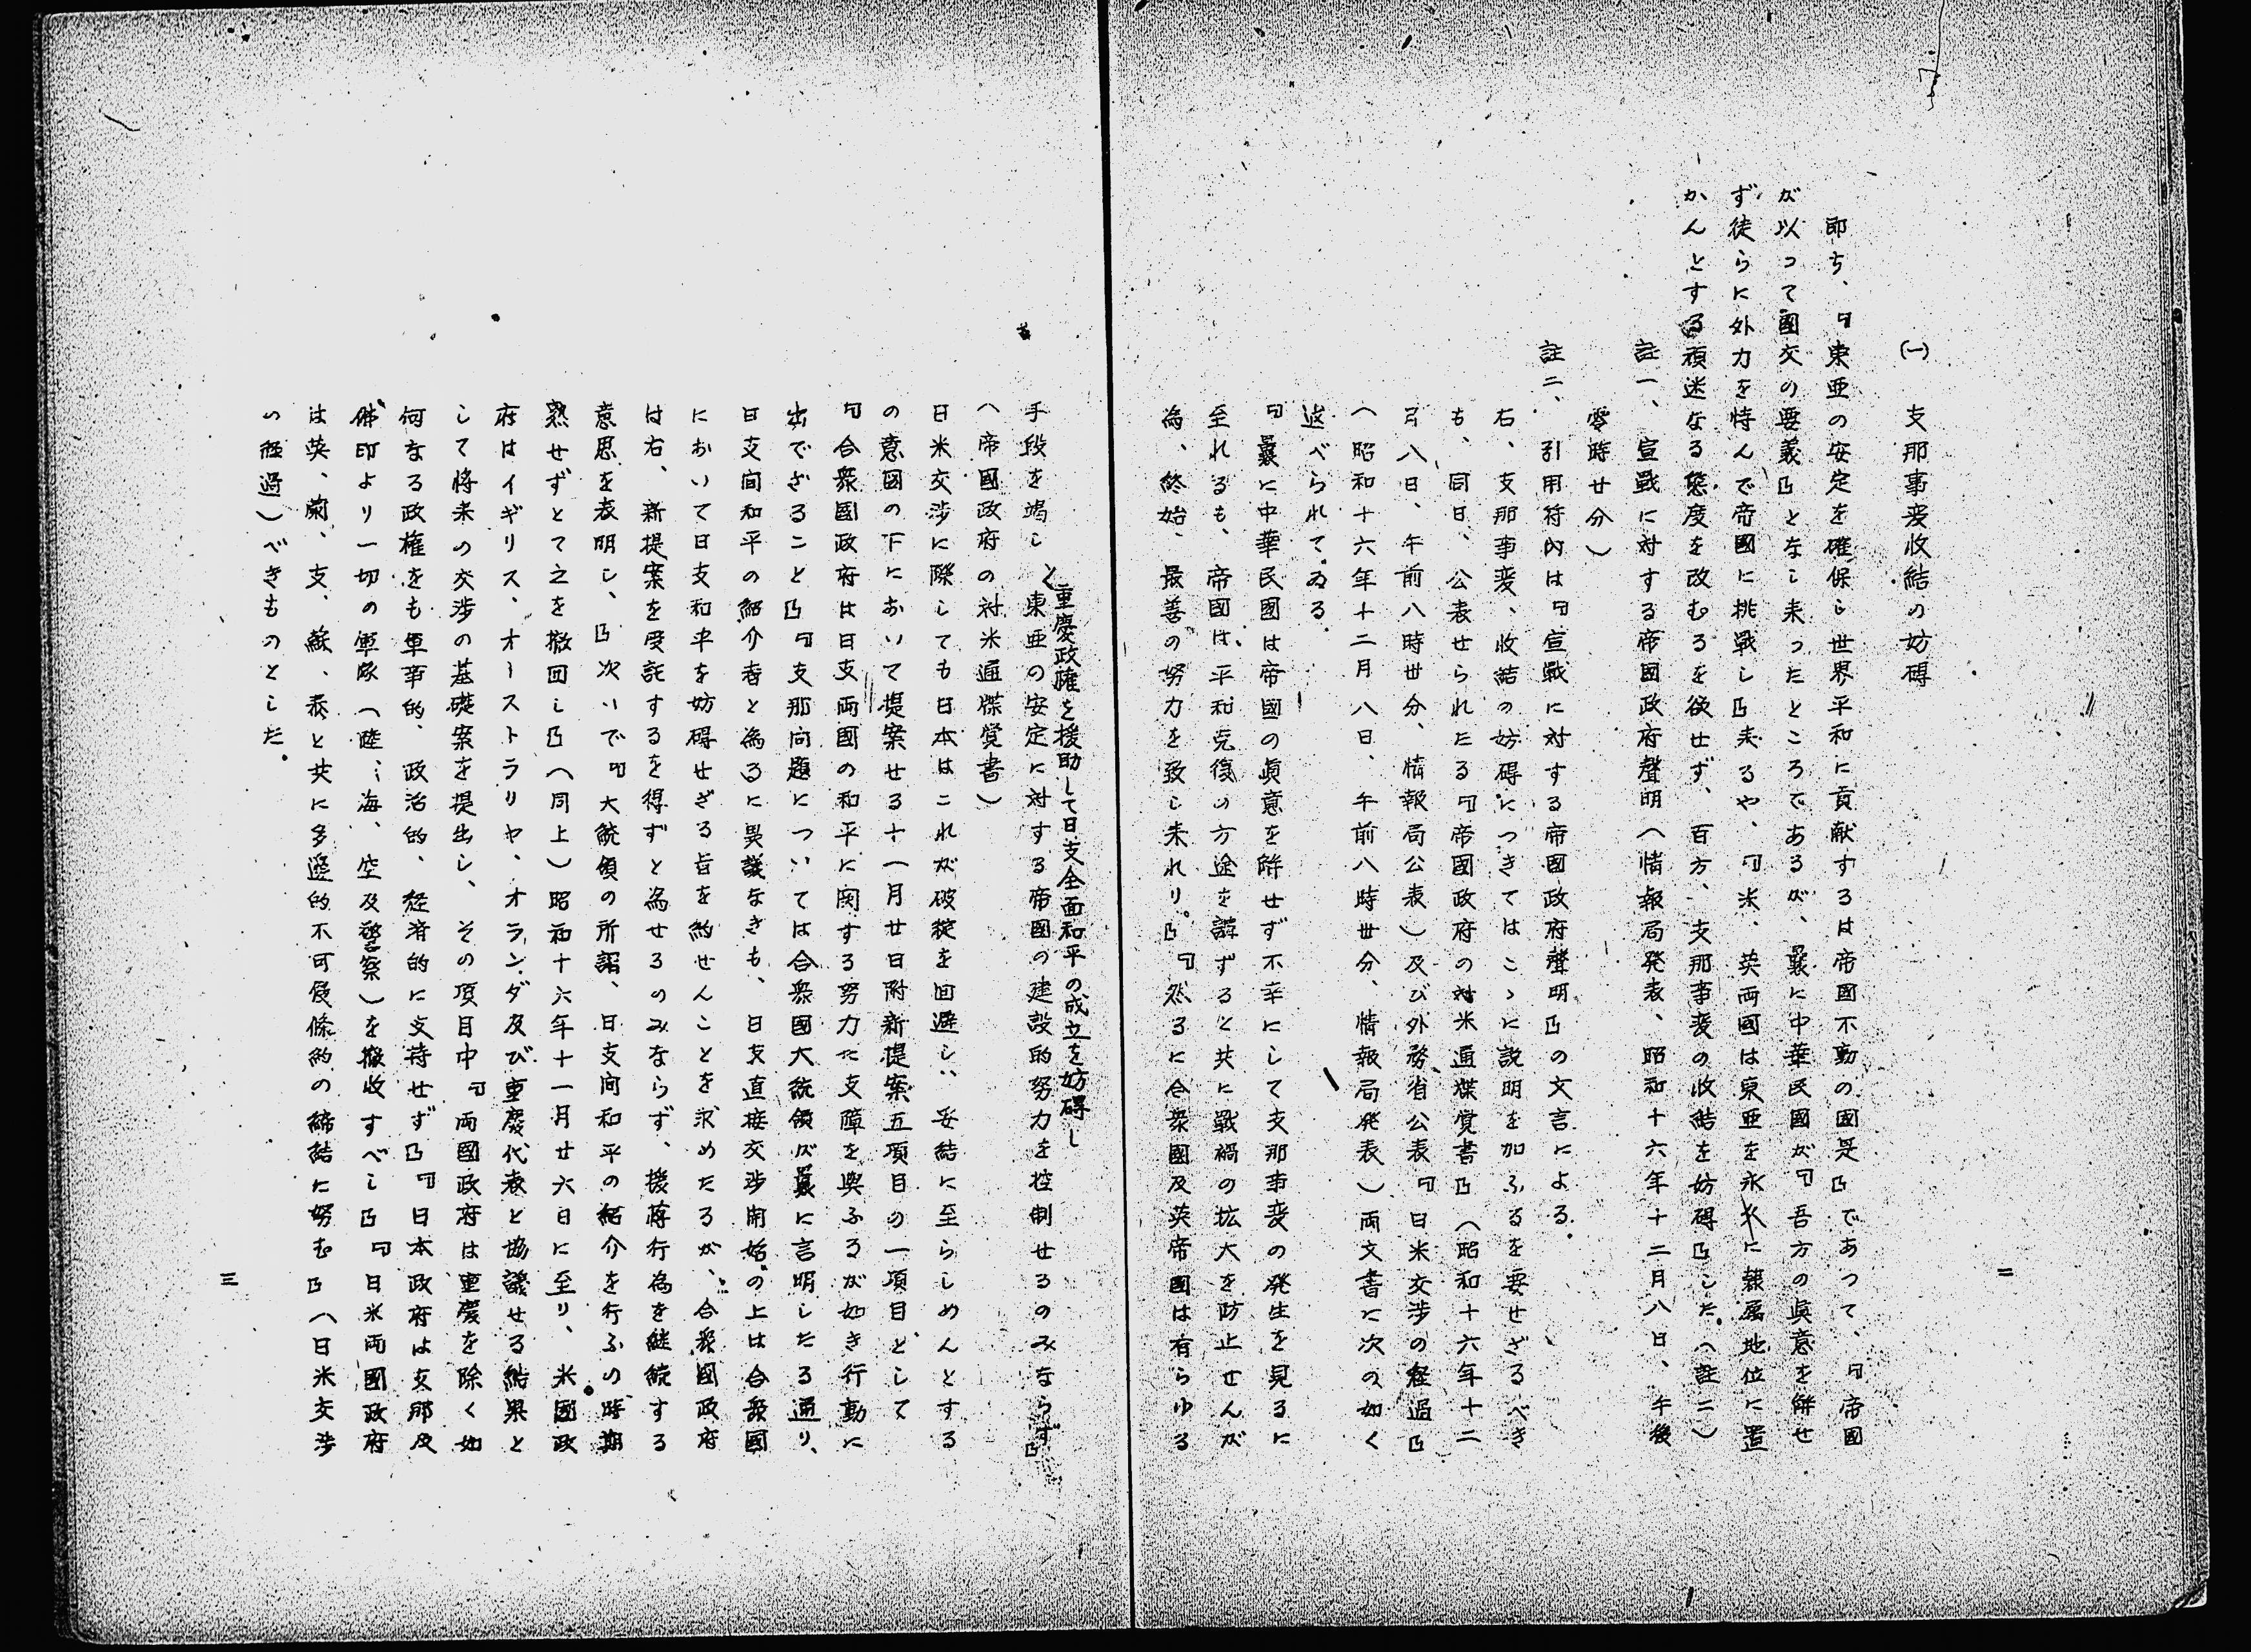 (一) 支那事変收結の妨碍
即ち、『東亜の安定を確保し世界平和に貢献するは帝國不動の國是』であって、『帝國
が以って國交の要義』となし来ったところであるが、曩に中華民國が『吾方の眞意を解せ
ず徒らに外力を恃んで帝國に挑戦し』来るや、『米、英両國は東亜を永久に隷属地位に置
かんとする頑迷なる態度を改むるを欲せず、百方、支那事変の收結を妨碍』した。(註二)
註一、宣戦に対する帝國政府聲明(情報局発表、昭和十六年十二月八日、午後
零時廿分)
註二、引用符內は『宣戦に対する帝國政府聲明』の文言による。
右、支那事変、收結の妨碍につきてはこゝに説明を加ふるを要せざるべき
も、同日、公表せられたる『帝國政府の対米通牒覚書』(昭和十六年十二
月八日、午前八時卅分、情報局公表)及び外務省公表『日米交渉の経過』
(昭和十六年十二月八日、午前八時卅分、情報局発表)両文書に次の如く
述べられてゐる.
『曩に中華民國は帝國の眞意を解せず不幸にして支那事変の発生を見るに
至れるも、帝國は、平和克復の方途を講ずると共に戦禍の拡大を防止せんが
為、終始、最善の努力を致し来れり。』『然るに合衆國及英帝國は有らゆる
二
手段を竭し重慶政権を援助して日支全面和平の成立を妨碍し東亜の安定に対する帝國の建設的努力を控制せるのみならず』
(帝國政府の対米通牒覚書)
日米交渉に際しても日本はこれが破綻を回避し、妥結に至らしめんとする
の意図の下において提案せる十一月廿日附新提案五項目の一項目として
『合衆國政府は日支両國の和平に関する努力に支障を與ふるが如き行動に
出でざること』『支那问題については合衆國大統領が曩に言明したる通り、
日支间和平の紹介者と為るに異議なきも、日支直接交渉開始の上は合衆國
において日支和平を妨碍せざる旨を約せんことを求めたるが、合衆國政府
は右、新提案を受託するを得ずと為せるのみならず、援蒋行為を継続する
意思を表明し、』次いで『大統領の所謂、日支间和平の紹介を行ふの時期
熟せずとて之を撤回し』(同上)昭和十六年十一月廿六日に至り、米國政
府はイギリス、オーストラリヤ、オランダ及び重慶代表と協議せる結果と
して将来の交渉の基礎案を提出し、その項目中『両國政府は重慶を除く如
何なる政権をも軍事的、政治的、経済的に支持せず』『日本政府は支那及
佛印より一切の軍隊(陸、海、空及警察)を撤收すべし』『日米両國政府
は英、蘭、支、蘇、泰と共に多邊的不可侵條約の締結に努む』(日米交渉
の経過)べきものとした.
三